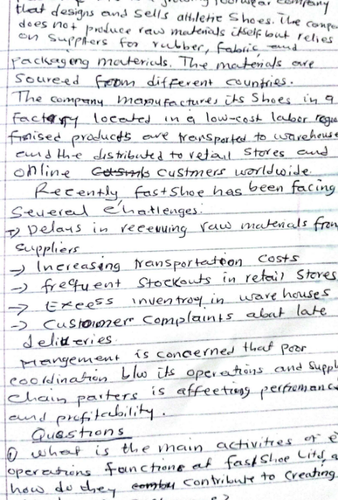 footwear company
that designs and sells athletic shoes. The compa
does not produce raw materials itself but relies
on suppliers for rubber, fabric and
packagong materials. The materials are
Sourced from different countries.
The company manufactures its Shoes in a
factory located in a low-cost labor regio
finised products are transported to warehouse
and the distributed to retail Stores and
online custmers worldwide
Recently fastshoe has been facing
Several challenges.
→ Delays in receuving raw materials from
suppliers
→ Increasing transportation costs
→ frequent stockouts in retail stores
→ Excess inventroy in ware houses
→ Customer complaints abat late
deliveries.
Mangement is concerned that poor
coordination b/w its operations and suppl
chain parters is affeeting perfromance
and profitability.
Questions
① what is the main activities of
operations functions at fastshoe Ltd, a
how do they contribute to creating